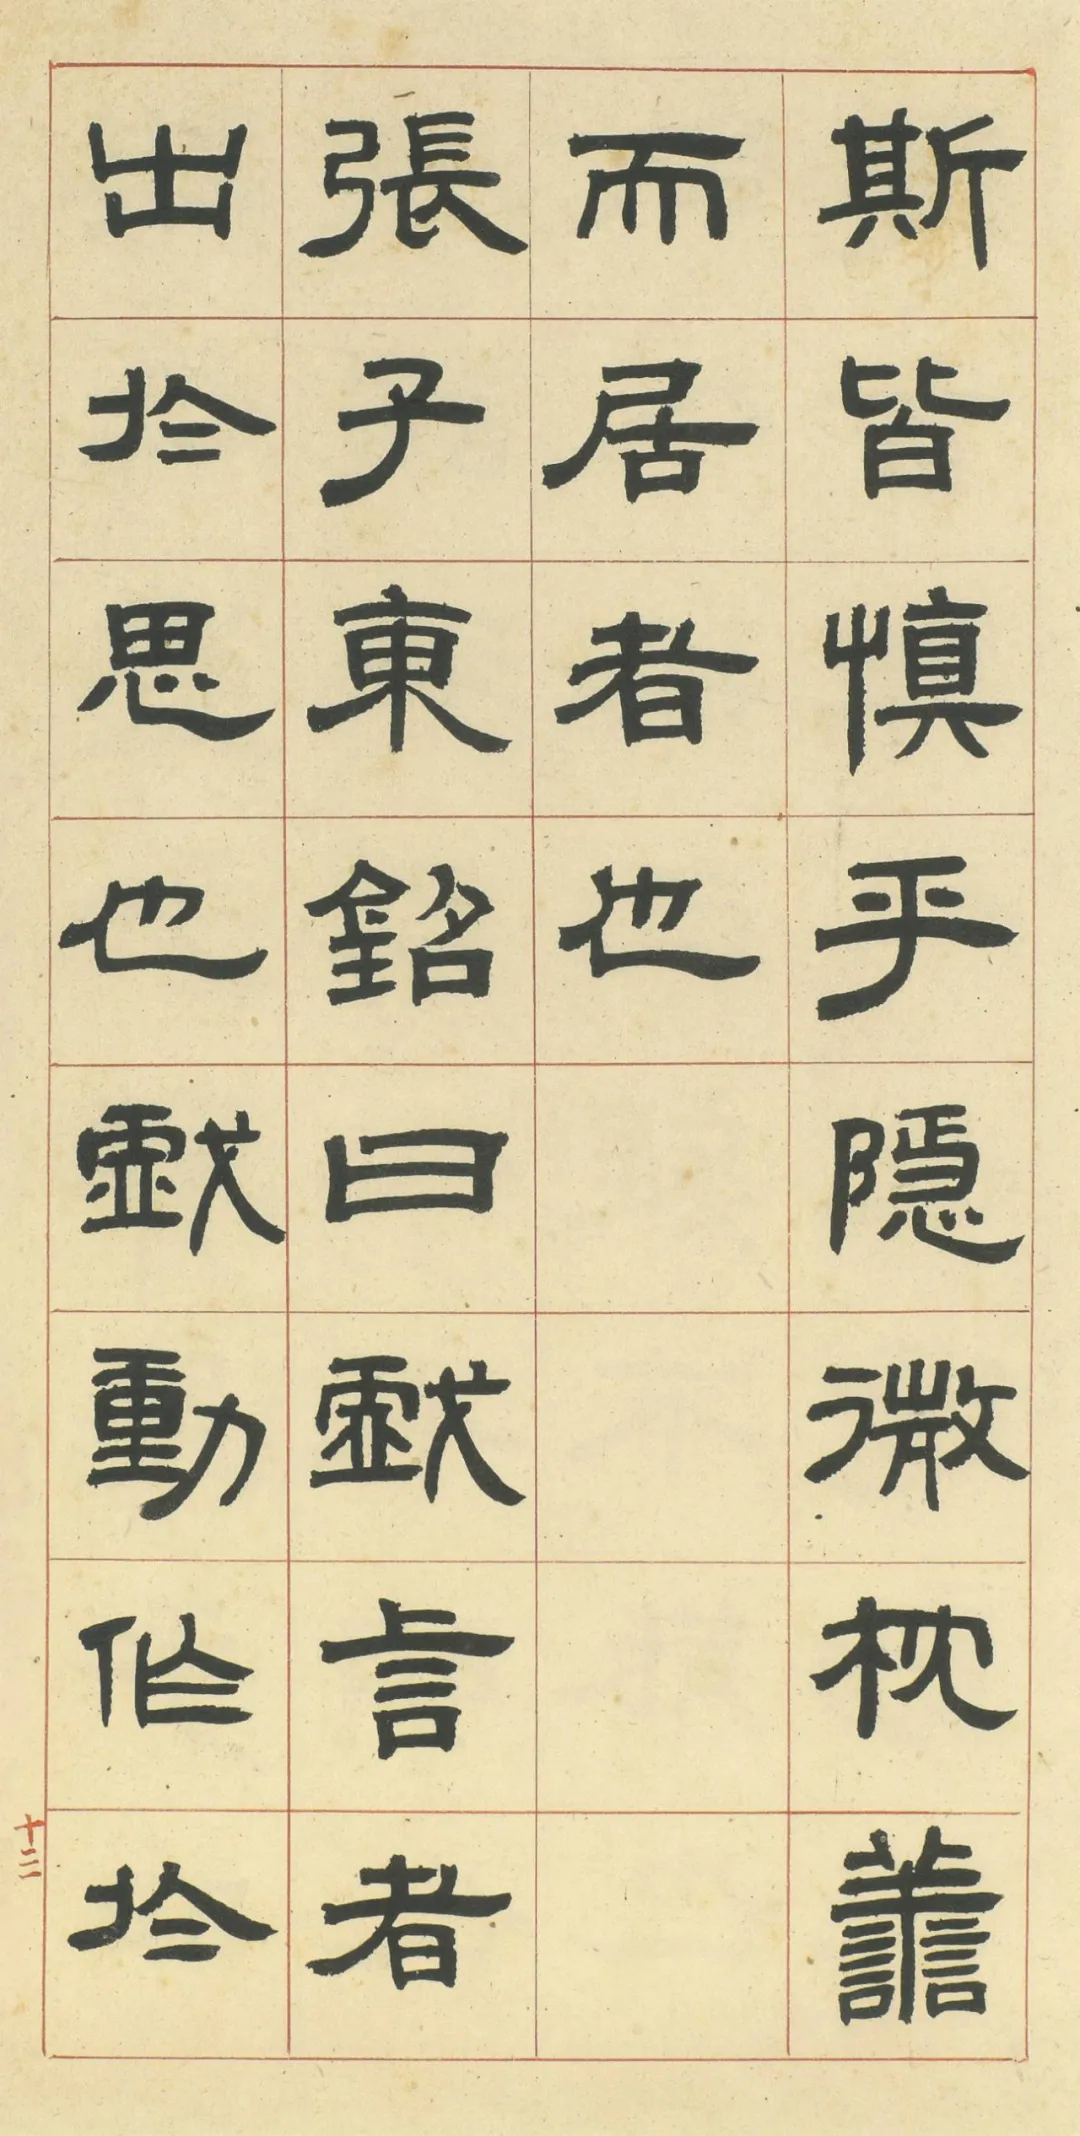 斯皆慎乎隱微枕譱
而居者也
張子東銘曰戲言者
出於思也戲動作於
十三